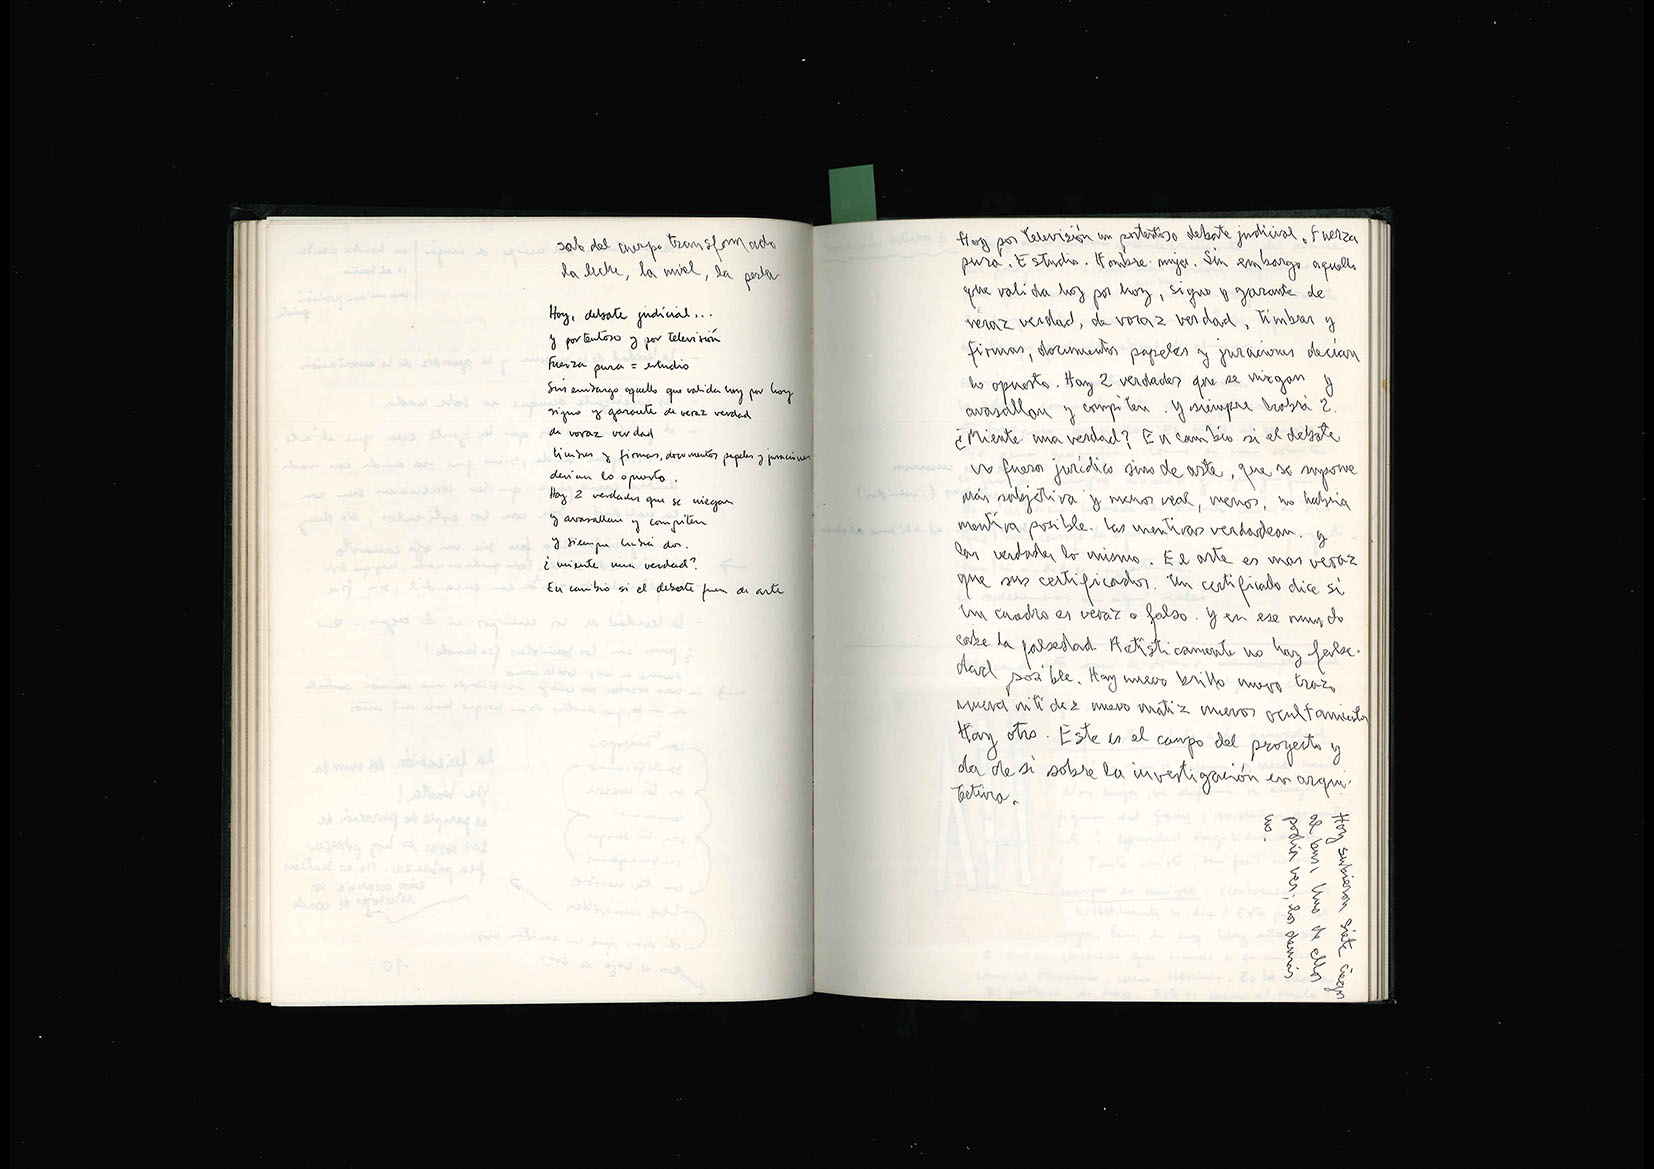 sale del cuerpo transformado
la leche, la miel, la perla
Hoy, debate judicial...
y portentoso y por televisión
Fuerza pura = estudio
Sin embargo aquello que valida hoy por hoy
signo y garante de veraz verdad
de voraz verdad
timbres y firmas, documentos papeles y juraciones
decían lo opuesto.
Hay 2 verdades que se niegan
y avasallan y compiten
y siempre habrá dos.
¿miente una verdad?
En cambio si el debate fuera de arte
Hoy por televisión un portentoso debate judicial. Fuerza
pura. Estudio. Hombre mujer. Sin embargo aquello
que valida hoy por hoy, signo y garante de
veraz verdad, de voraz verdad, timbres y
firmas, documentos papeles y juraciones decían
lo opuesto. Hay 2 verdades que se niegan y
avasallan y compiten. Y siempre habrá 2.
¿Miente una verdad? En cambio si el debate
no fuese jurídico sino de arte, que se supone
más subjetiva y menos real, menos, no habría
mentira posible. Las mentiras verdadean. y
las verdades lo mismo. El arte es mas veraz
que sus certificados. Un certificado dice si
un cuadro es veraz o falso. Y en ese mundo
cabe la falsedad. Artísticamente no hay false-
dad posible. Hay nuevo brillo nuevo trazo
nueva nitidez nuevo matiz nuevos ocultamientos
Hay otro. Este es el campo del proyecto y
da de sí sobre la investigación en arqui-
tectura.
Hoy subieron siete ciegos
al bus. Uno de ellos
podía ver; los demás
no.